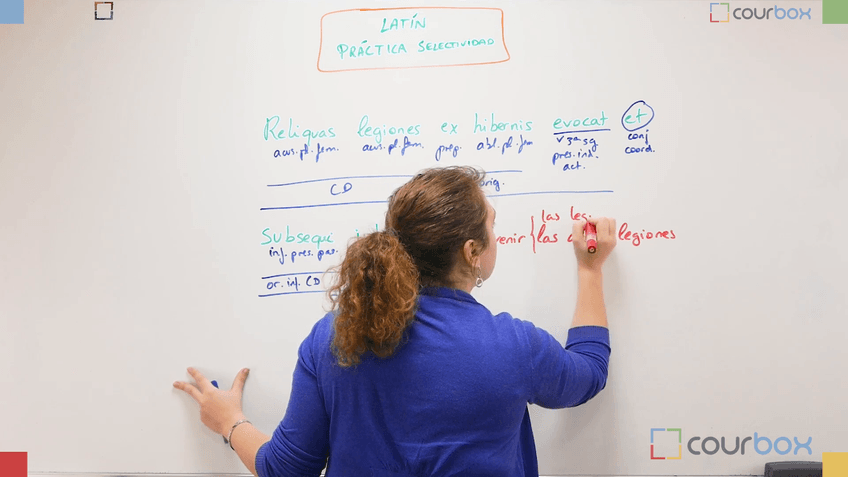 courbox
LATÍN
PRÁCTICA SELECTIVIDAD
Reliquas legiones ex hibernis evocat et
acus. pl. fem. acus. pl. fem. prep. abl. pl. fem v 3ª sg conj
pres. ind. coord.
act.
C.D orig.
las leg.
Subsequi venir { las legiones
inf. pres. pas.
or. inf. CD
courbox